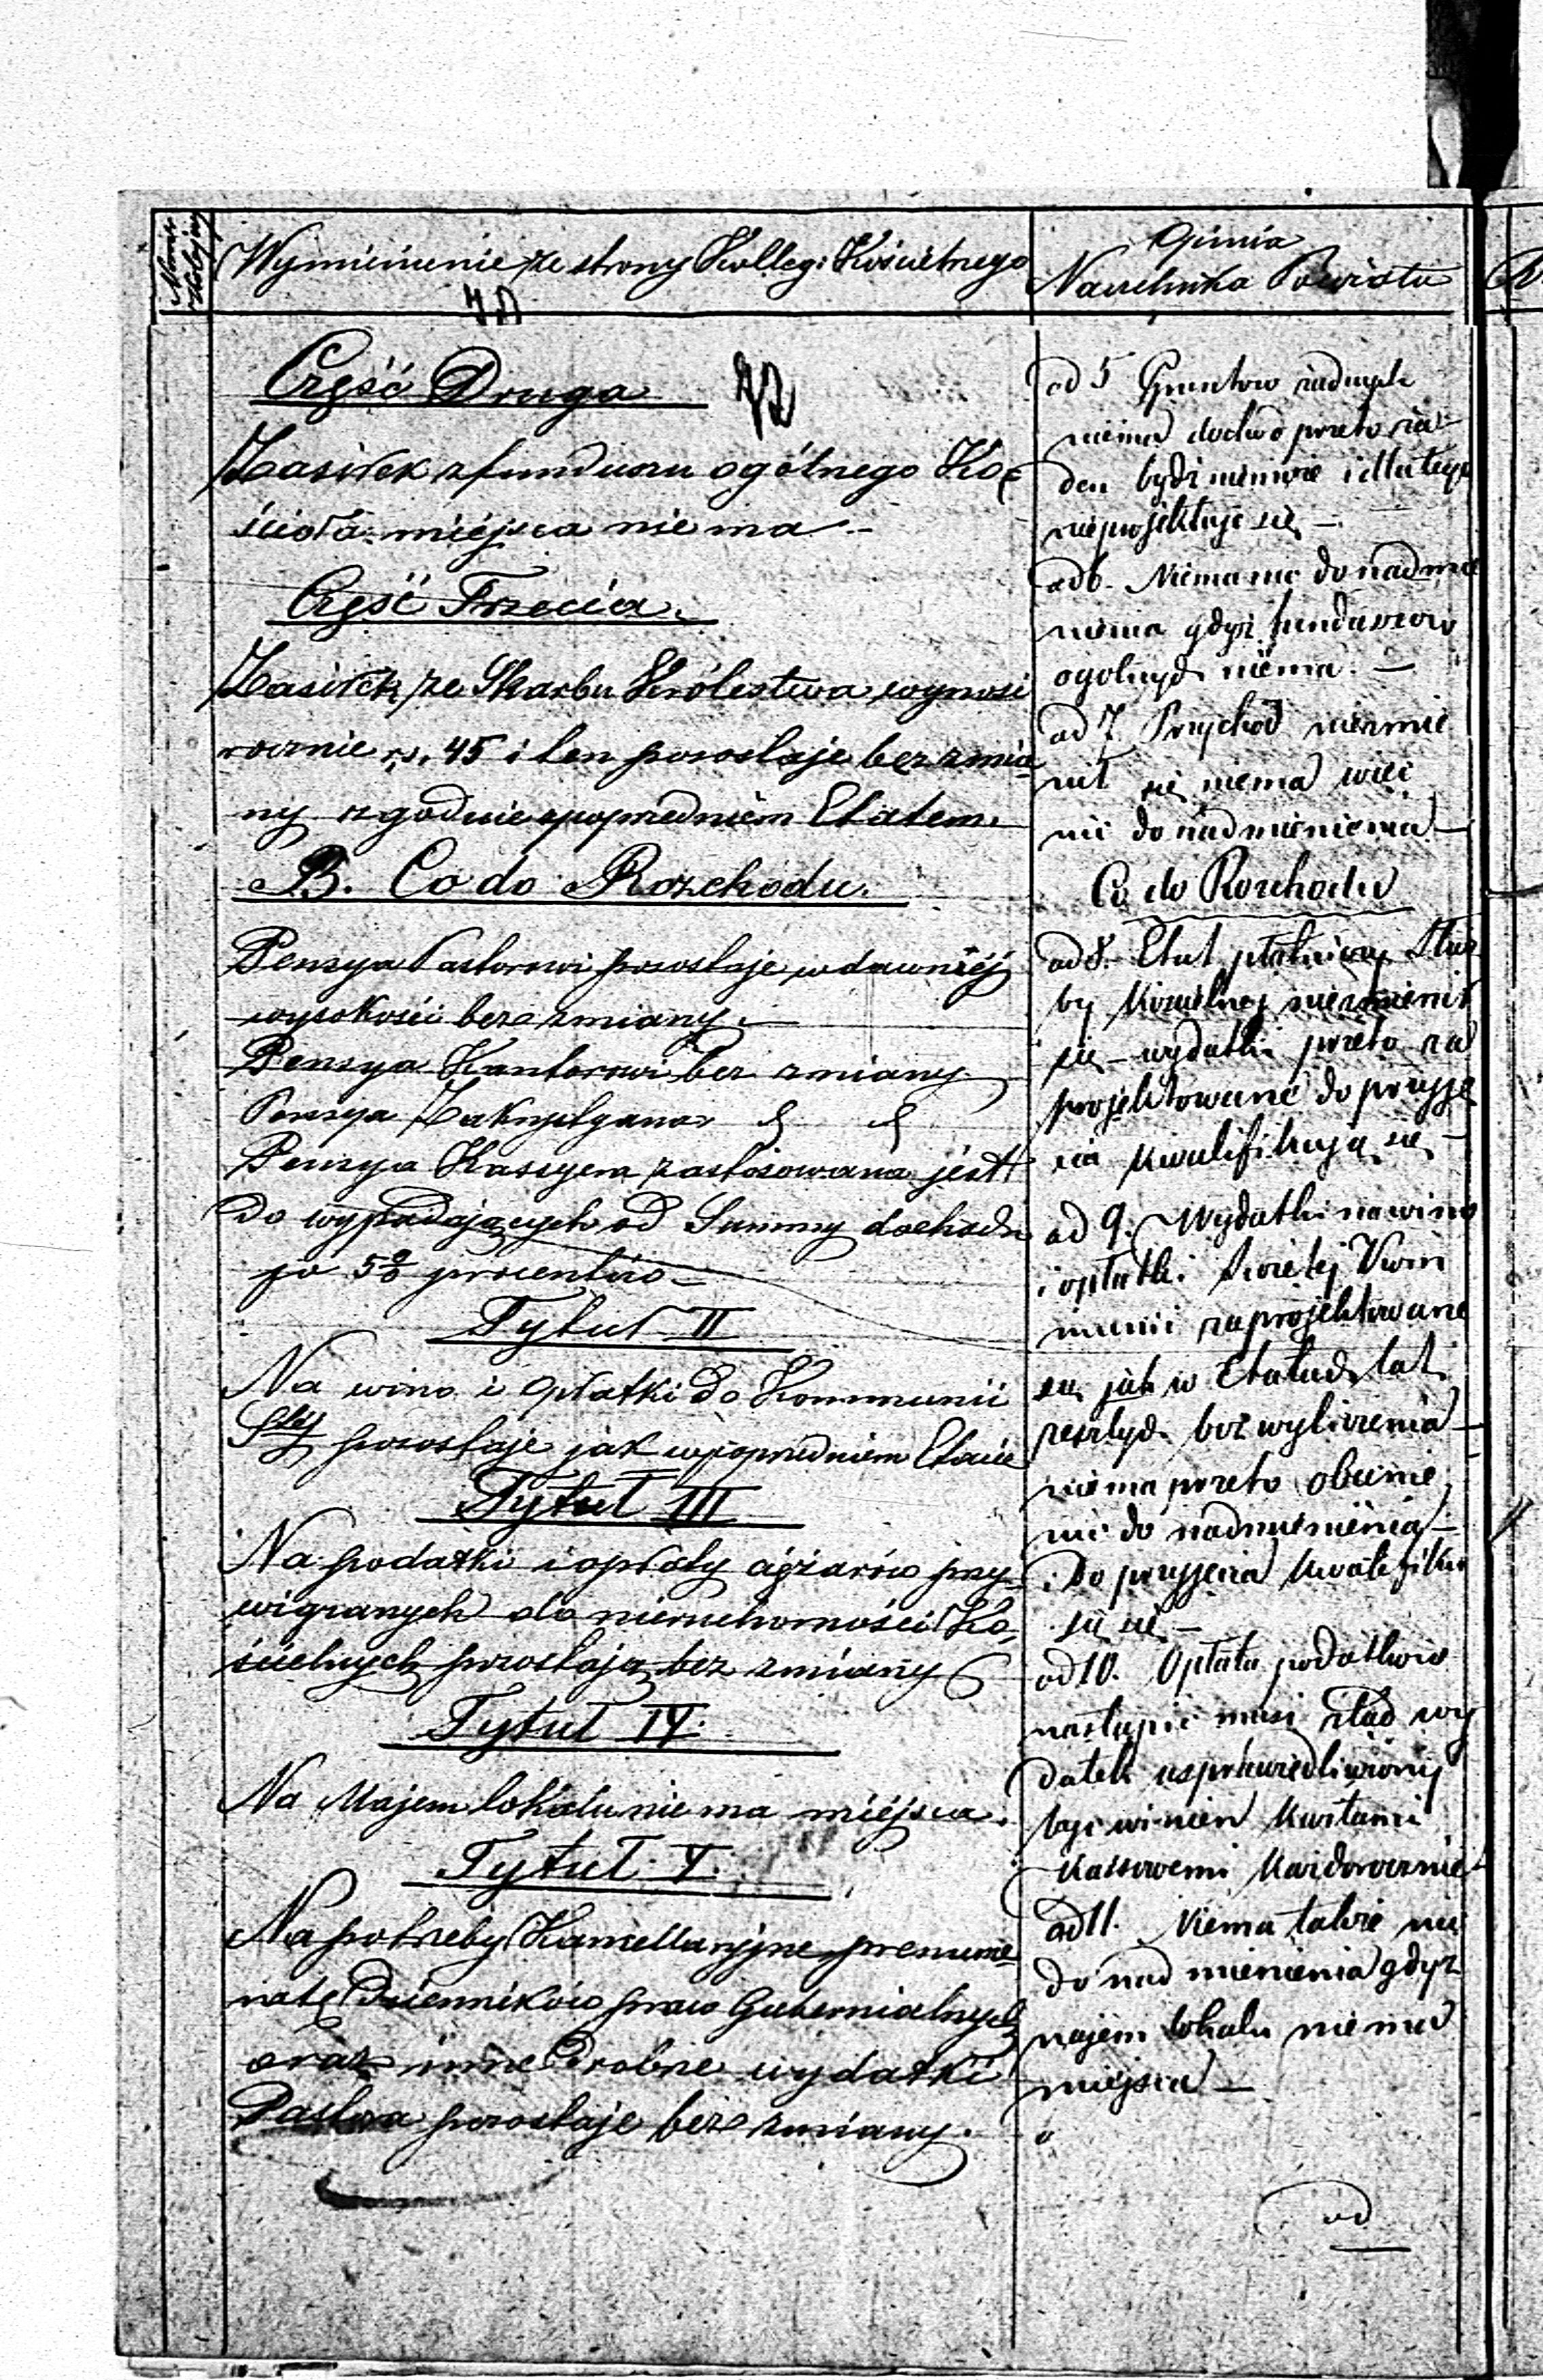 Numer kolejny
Wymienienie ze strony Kolleg: Kościelnego
Opinia
Naczelnika Powiatu
Część Druga
72
Zasiłek z funduszu ogólnego Ko-
ścioła miejsca nie ma -
Część Trzecia.
Zasiłek ze Skarbu Królestwa wynosi
rocznie rs. 45 i ten pozostaje bez zmia-
ny zgodnie z poprzedniém Etatem.
B. Co do Rozchodu.
Pensya Pastorowi pozostaje w dawniéj
wysokości bez zmiany.
Pensya Kantorowi bez zmiany
Pensya
Pensya Kassyera zastosowana jest
do wypadających od Summy dochodu
po 5% procentów -
Tytuł II
Na wino i Opłatki do Kommunii
Stéj pozostaje jak w poprzedniem Etacie
Tytuł III
Na podatki i opłaty ciężarów przy-
wiązanych do nieruchomości Ko-
ścielnych pozostają bez zmiany
Tytuł IV.
Na Najem lokalu nie ma miéjsca.
Tytuł V.
Na potrzeby Kancellaryjne, prenume-
ratę Dzienników praw Gubernialnych
oraz inne drobne wydatki
Pastora pozostaje bez zmiany.
ad 5 Gruntów żadnych
niema dochód przeto żа-
den bydź niemoże i dla tego
nieprojektuje się -
ad 6. Niema nic do nadmie
nienia gdyż funduszów
ogolnych niema. -
ad 7. Przychód niezmie
nił się niema więc
nic do nadmienienia -
Co do Rozchodu
ad 8. Etat płatniczy Służ
by Kościelnej niezmienił
się - wydatki przeto za
projektowane do przyję
cia kwalifikują się -
ad 9. Wydatki na wino
i opłatki Świętej Kom
munii zaprojektowane
są jak w Etatach lat
zeszłych bez wyliczenia -
niema przeto obecnie
nic do nadmienienia -
i do przyjęcia kwalifiku
ją się -
ad 10. Opłata podatków
nastąpić musi ztąd wy
datek usprawiedliwiony
być winien kwitami
Kassowemi każdorocznie
ad 11. Niema także nic
do nadmienienia gdyż
najem lokalu niema
miejsca -
ad